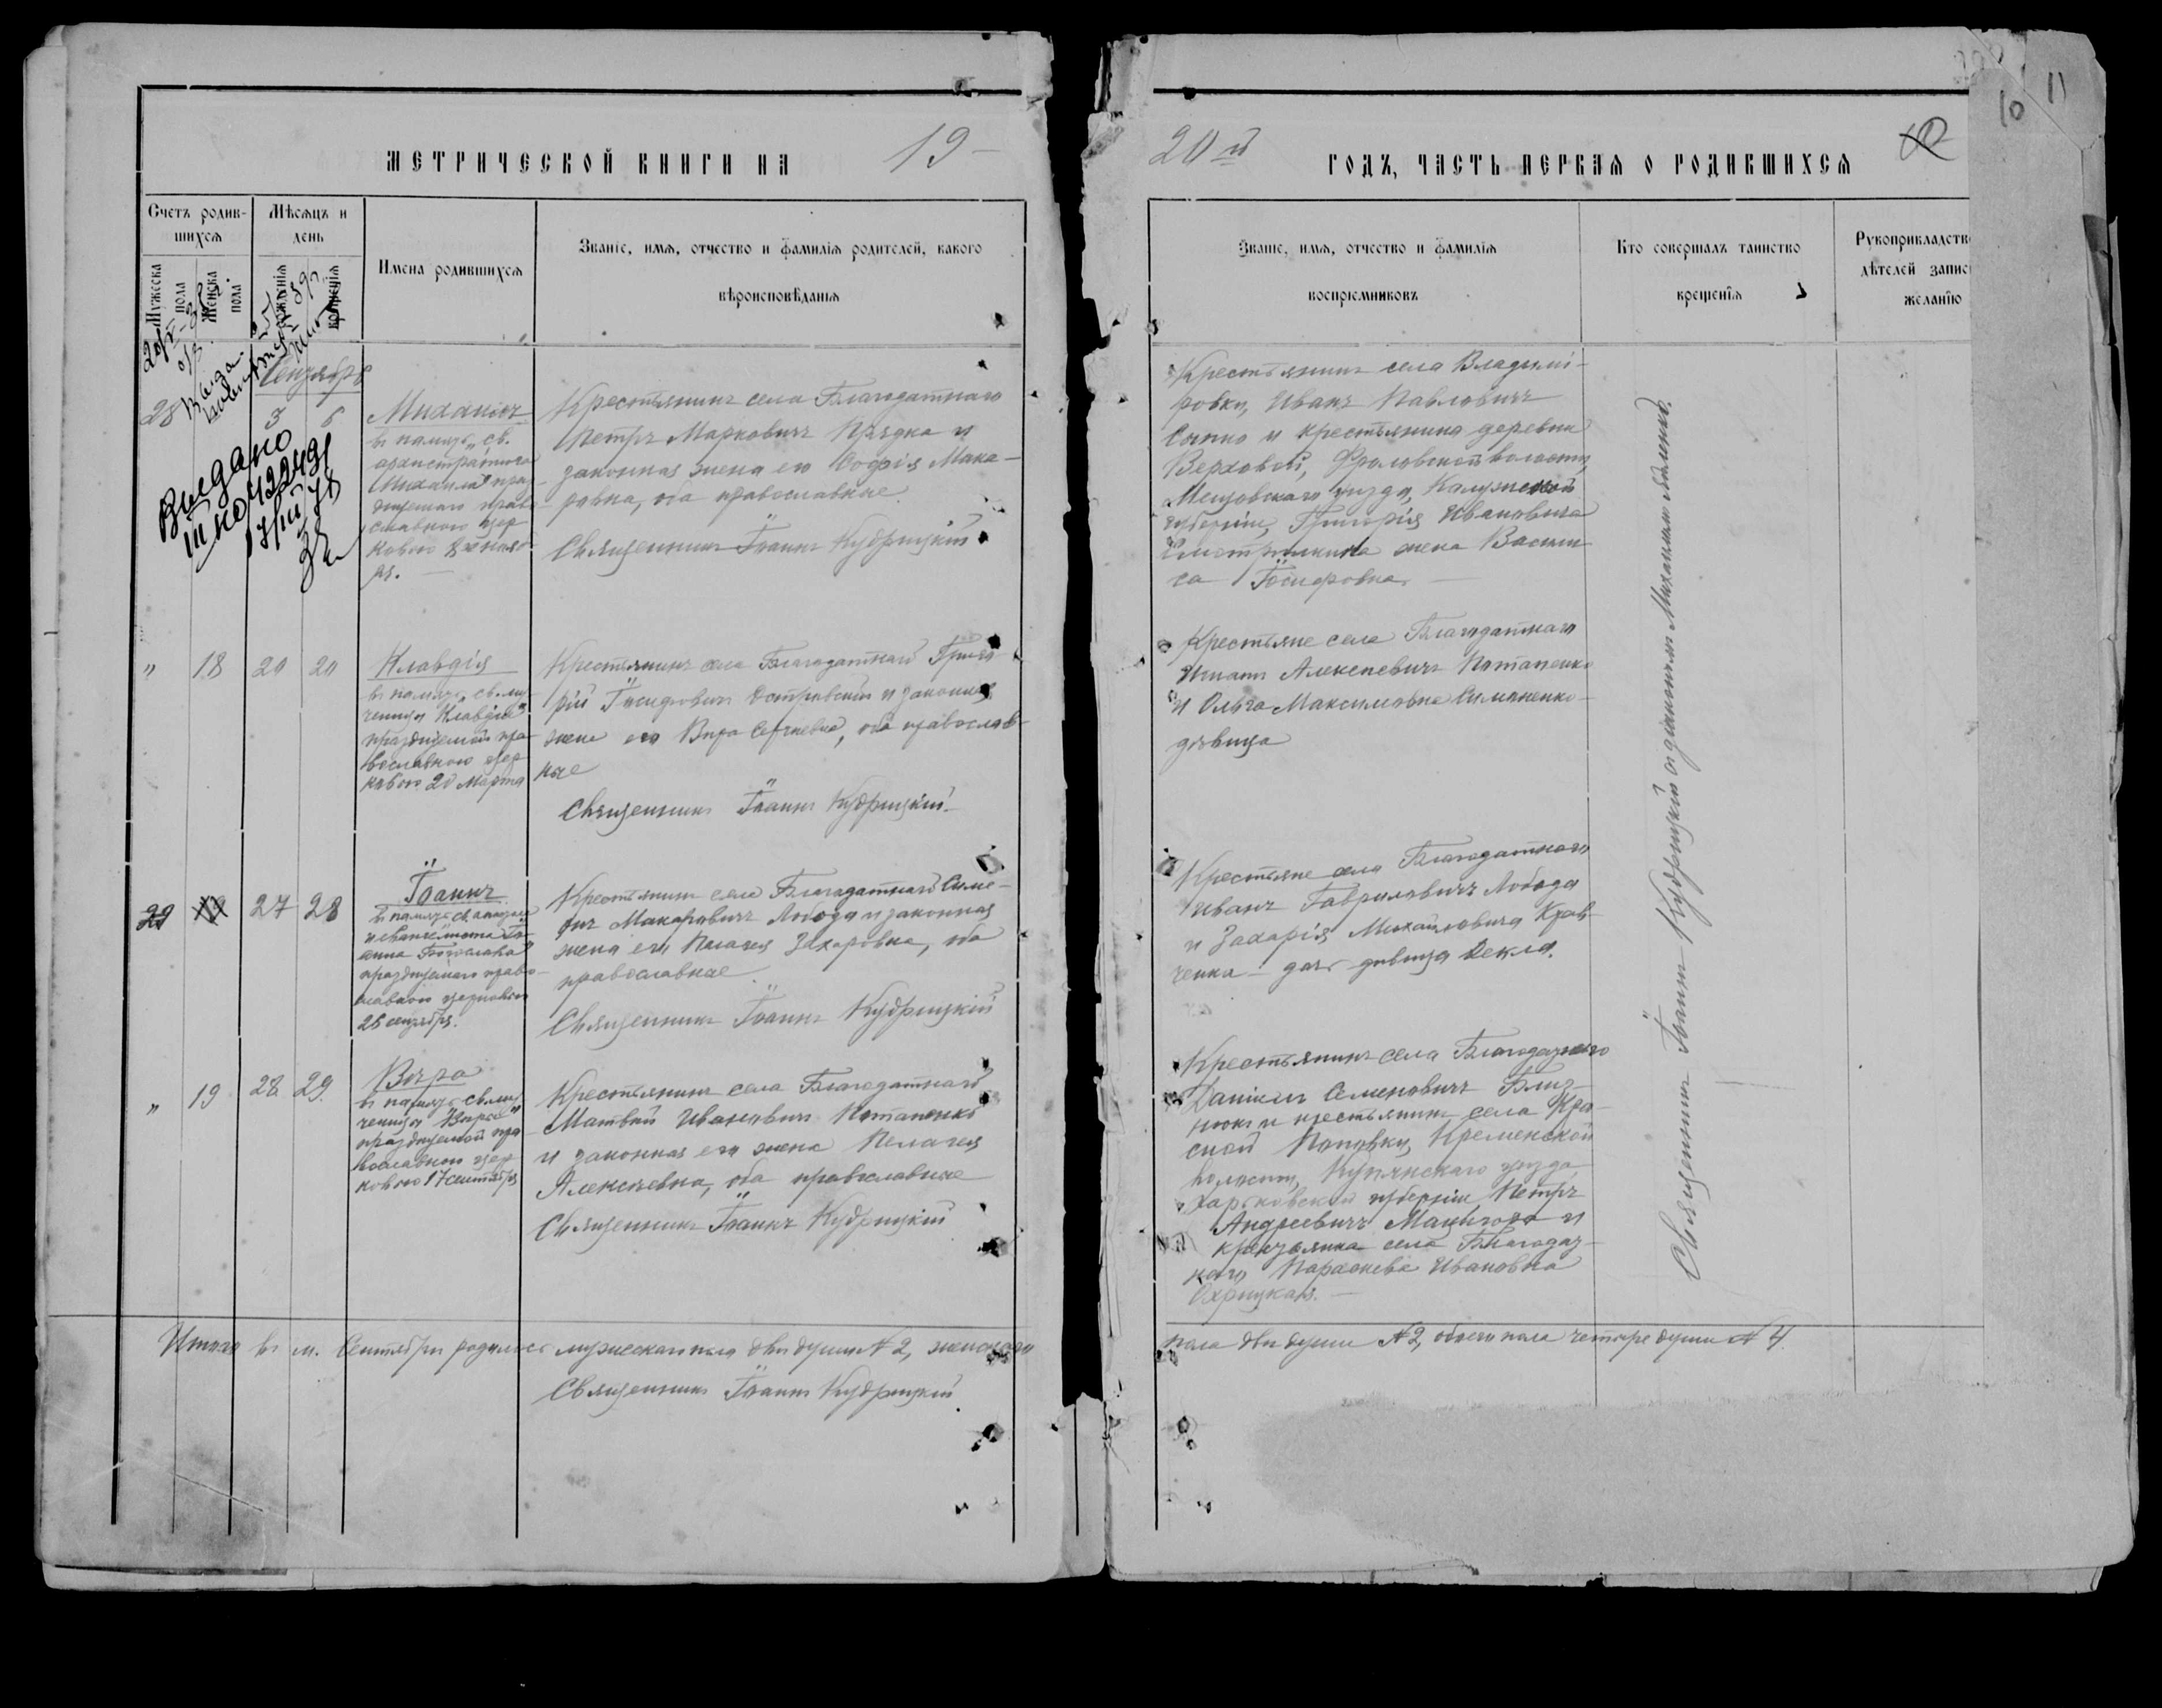 МЕТРИЧЕСКОЙ КНИГИ НА 19
20 й ГОДЪ, ЧАСТЬ ПЕРВАЯ О РОДИВШИХСЯ
10
11
Счетъ родив-
шихся
Мѣсяцъ и
день
Мужеска
пола
Женска
пола
рожденія
крещенія
Имена родившихся
Званіе, имя, отчество и фамилія родителей, какого
вѣроисповѣданія
Званіе, имя, отчество и фамилія
воспріемниковъ
Кто совершалъ таинство
крещенія
Рукоприкладств
дѣтелей запис
желанію
Сентябрь
28
3 6
Видано
17/III 78
Михаилъ
въ память св.
архистратига
Михаила праз
днуемаго право
славною цер
ковью 8 нояб
ря.
Крестьянинъ села Благодатнаго
Петръ Марковичъ Прядка и
законная жена его Софія Мака-
ровна, оба православные.
Священникъ Іоаннъ Кудрицкій
Крестьянинъ села Владими-
ровки, Иванъ Павловичъ
Сыпко и крестьянина деревни
Верховой, Фроловской волости,
Мещовскаго уѣзда, Калужской
губерніи, Григорія Ивановича
жена Васили
са Іосифовна
" 18 20 20
Клавдія
въ память св. му-
ченицы Клавдіи
празднуемой пра-
вославною цер
ковью 20 Марта
Крестьянинъ села Благодатнаго Григо
рій Островскій и законная
жена его Вѣра Сергѣевна, оба православ-
ные
Священникъ Іоаннъ Кудрицкій
Крестьяне села Благодатнаго
Игнатъ Алексѣевичъ Потапенко
и Ольга Максимовна Симоненко-
дѣвица
29 27 28
Іоаннъ
въ память св. апостола
и евангелиста Іо-
анна Богослова
празднуемаго право-
славною церковью
26 сентября.
Крестьянинъ села Благодатнаго Симе-
онъ Макаровичъ Лобода и законная
жена его Пелагея Захаровна, оба
православные
Священникъ Іоаннъ Кудрицкій
Крестьяне села Благодатнаго
Иванъ Гавриловичъ Лобода
и Захарія Михайловича Крав-
ченка - дочь дѣвица Текля.
" 19 28 29
Вѣра
въ память св. му
ченицы Вѣры
празднуемой пра
вославною цер
ковью 17 сентября
Крестьянинъ села Благодатнаго
Матвѣй Ивановичъ Потапенко
и законная его жена Пелагея
Алексѣевна, оба православные
Священникъ Іоаннъ Кудрицкій
Крестьянинъ села Благодатнаго
Даніилъ Семеновичъ Близ-
нюкъ и крестьянинъ села Кра-
сной Поповки, Кременской
волости, Купянскаго уѣзда
Харьковской губерніи Петръ
Андреевичъ и
крестьянка села Благодат-
наго Параскева Ивановна
Охрицкая.
Священникъ Іоаннъ Кудрицкій съ діакономъ Михаиломъ
Итого въ м. Сентябрѣ родилось мужескаго пола двѣ души № 2, женскаго
пола двѣ души № 2, обоего пола четыре души № 4
Священникъ Іоаннъ Кудрицкій